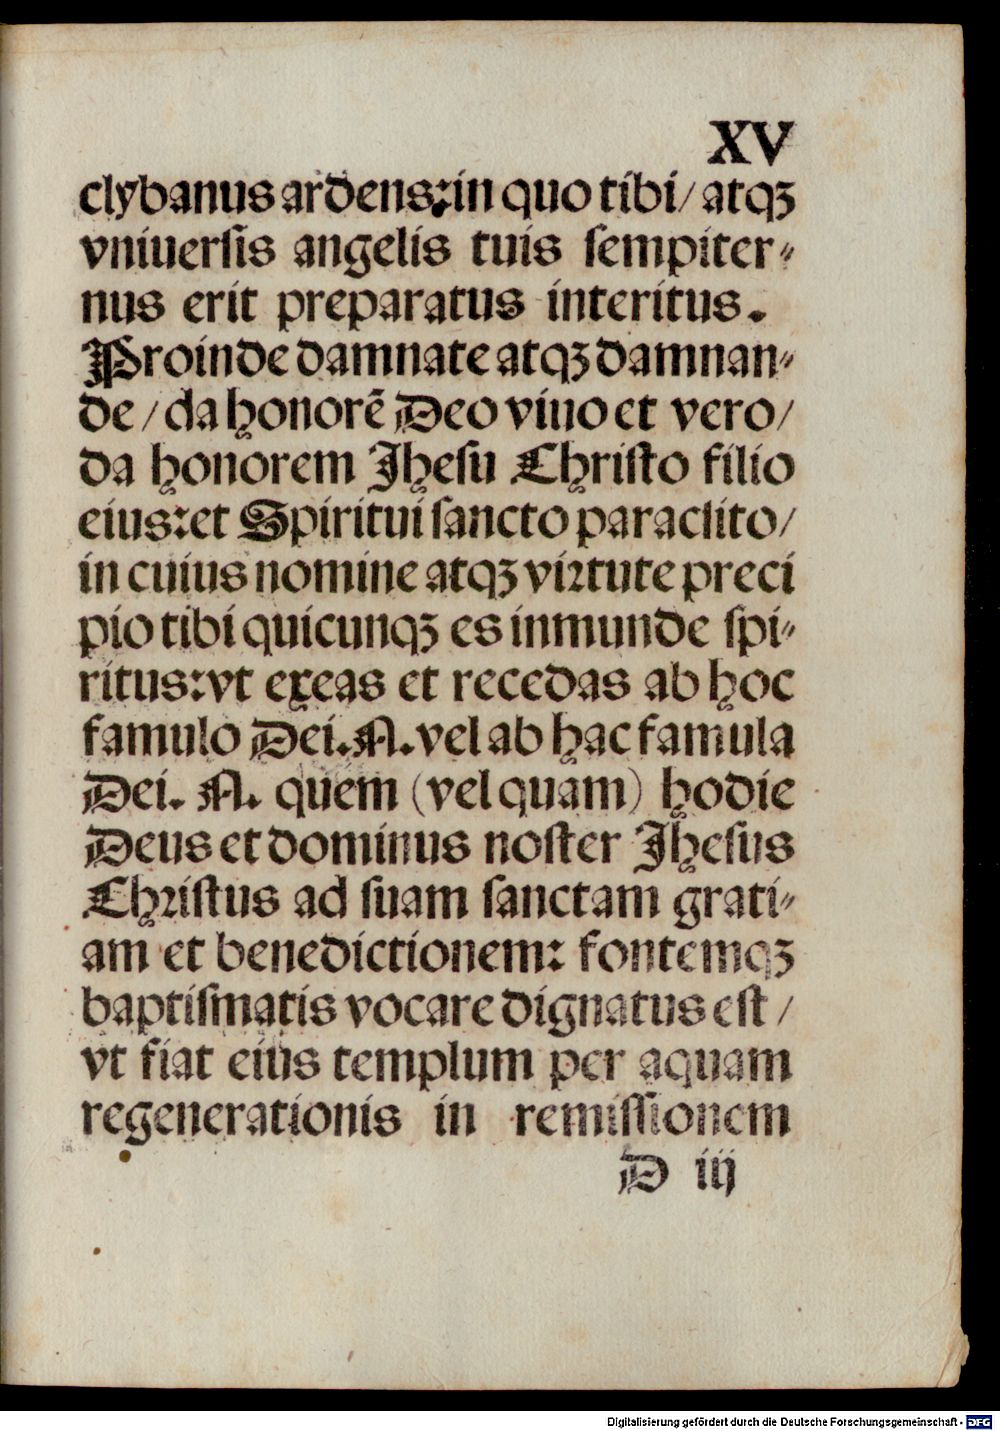 XV
clybanus ardens: in quo tibi/ atqꝫ
vniuersis angelis tuis sempiter⸗
nus erit preparatus interitus.
Proinde damnate atqꝫ damnan⸗
de / da honorē Deo viuo et vero/
da honorem Jhesu Christo filio
eius: et Spiritui sancto paraclito/
in cuius nomine atqꝫ virtute preci
pio tibi quicunqꝫ es inmunde spi⸗
ritus: vt exeas et recedas ab hoc
famulo Dei. N. vel ab hac famula
Dei. N. quem (vel quam) hodie
Deus et dominus noster Jhesus
Christus ad suam sanctam grati⸗
am et benedictionem: fontemqꝫ
baptismatis vocare dignatus est /
vt fiat eius templum per aquam
regenerationis in remissionem
D iij
Digitalisierung gefördert durch die Deutsche Forschungsgemeinschaft - DFG